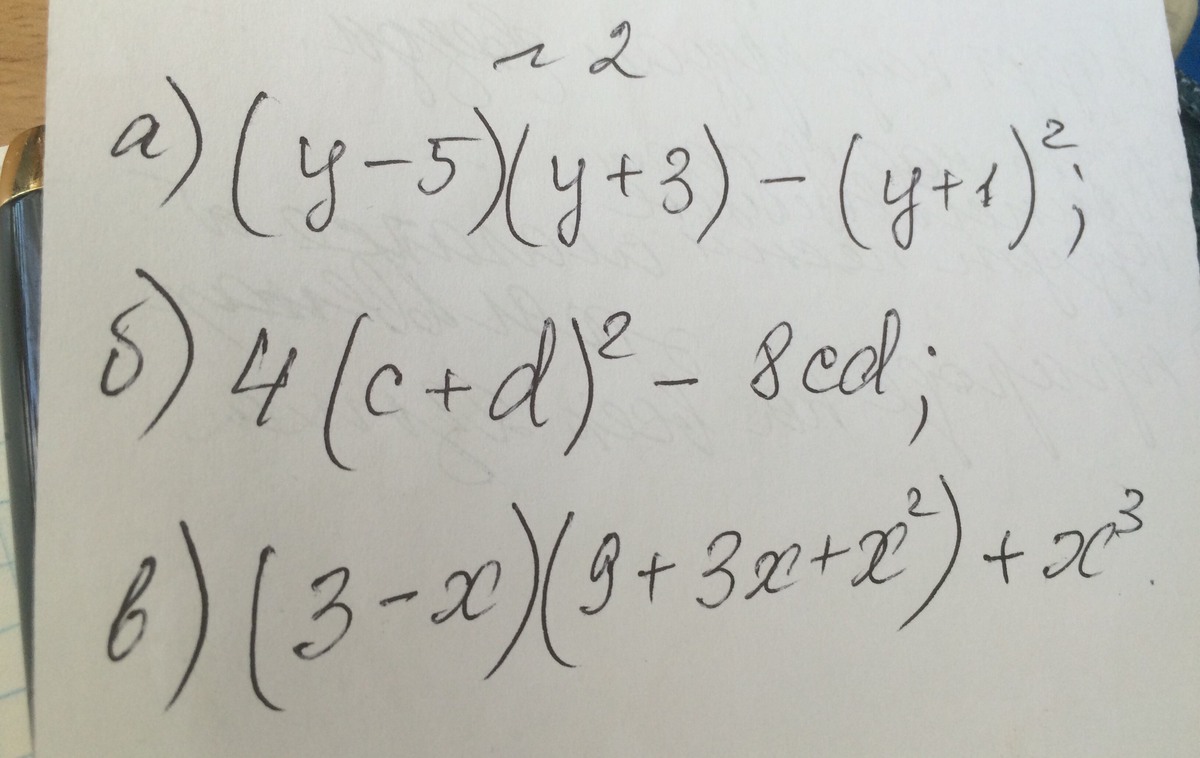 ~ 2
а) (y-5)(y+3) - (y+1)²;
б) 4(c+d)² - 8cd;
в) (3-x)(9+3x+x²) + x³.